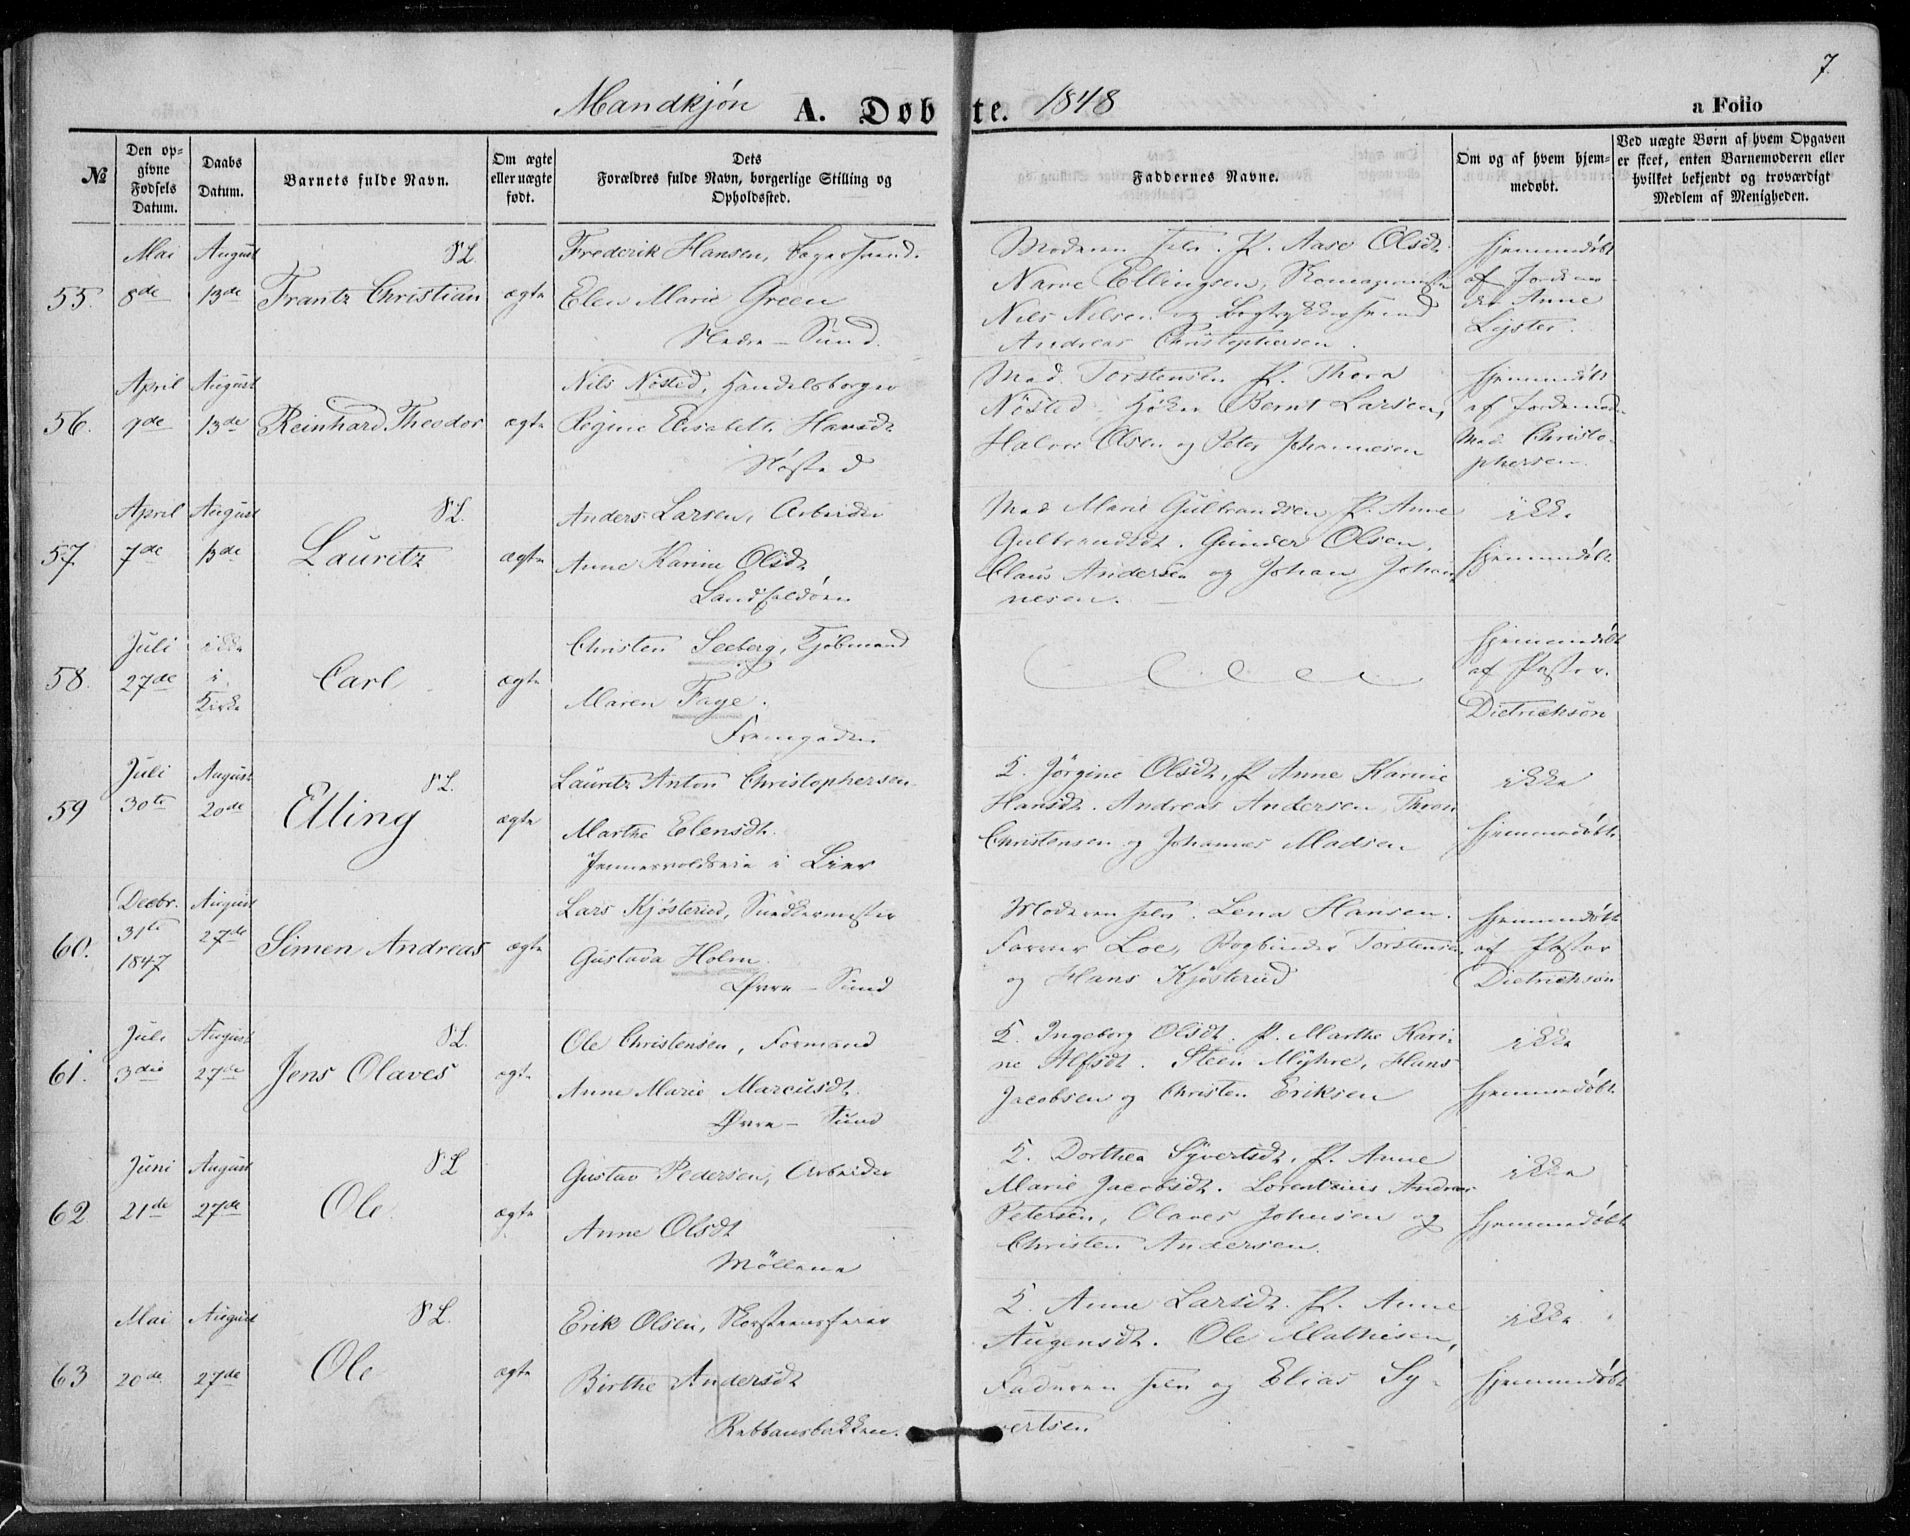 7.
Mandkjøn A. Døbte. 1848 a Folio
№
Den op-
givne
Fødsels
Datum.
Daabs
Datum.
Barnets fulde Navn.
Om ægte
eller uægte
født.
Dets
Forældres fulde Navn, borgerlige Stilling og
Opholdssted.
Faddernes Navne.
Om og af hvem hjem-
medøbt.
Ved uægte Børn af hvem Opgaven
er skeet, enten Barnemoderen eller
hvilket bekjendt og troværdigt
Medlem af Menigheden.
55.
Mai
8de
August
13de
Frantz Christian
ægte
Frederik Hansen,
Elen Marie Green
Nedre - Sund.
Moderen selv. P. Aase Olsdt.
Narve Ellingsen,
Nils Nilsen og
Andreas Christophersen.
hjemmedøbt
af Jordemo-
der Anne
Lyster.
56.
April
9de
August
13de
Reinhard Theodor
ægte
Nils Nøsted, Handelsborger
Regine Elisabeth Hansdt
Nøsted
Mad. Torstensen P. Thora
Nøsted, Høker Bernt Larsen,
Halvor Olsen og Peter Johannesen
hjemmedøbt
af Jordemod.
Mad. Christo-
phersen.
57.
April
7de
August
13de
Lauritz
ægte
Anders Larsen, Arbeider
Anne Karine Olsdt
Landfaldøen
Mad Marie Gulbrandsen P. Anne
Gulbrandsdt. Gunder Olsen,
Claus Andersen og Johan Johan-
nesen.
ikke
hjemmedøbt
58.
Juli
27de
ikke
i
Kirke
Carl
ægte
Christen Seeberg, Kjøbmand
Maren Faye.
Fremgaden
hjemmedøbt
af Pastor.
Dietrichson
59
Juli
30te
August
20de
Elling
ægte
Lauritz Anton Christophersen
Marthe Elensdt.
i Lier
Jørgine Olsdt, P Anne Karine
Hansdt. Andreas Andersen, Thron
Christensen og Johannes Madsen
ikke
hjemmedøbt
60.
Decbr.
31te
1847
August
27de
Simen Andreas
ægte
Lars Kjøsterud, Snedkermester
Gustava Holm.
Øvre - Sund
Moderen selv. Lena Hansen.
Farver Loe, Bogbinder Torstensen
og Hans Kjøsterud
hjemmedøbt
af Pastor
Dietrichson
61.
Juli
3die
August
27de
Jens Olaves
ægte
Ole Christensen, Formand
Anne Marie Marcusdt.
Øvre - Sund
Ingeborg Olsdt. P. Marthe Kari-
ne Alfsdt. Steen Myhre, Hans
Jacobsen og Christen Eriksen
ikke
hjemmedøbt
62
Juni
21de
August
27de
Ole
ægte
Gustav Pedersen, Arbeider
Anne Olsdt
Møllene
Dorthea Syvertsdt, P. Anne
Marie Jacobsdt. Lorentzius Andreas
Petersen, Olaves Johnsen og
Christen Andersen.
ikke
hjemmedøbt
63
Mai
20de
August
27de
Ole
ægte
Erik Olsen, Skorsteensfeier
Birthe Andersdt
Anne Larsdt. P. Anne
Augensdt. Ole Mathisen,
Faderen selv og Elias Sy-
vertsen
ikke
hjemmedøbt